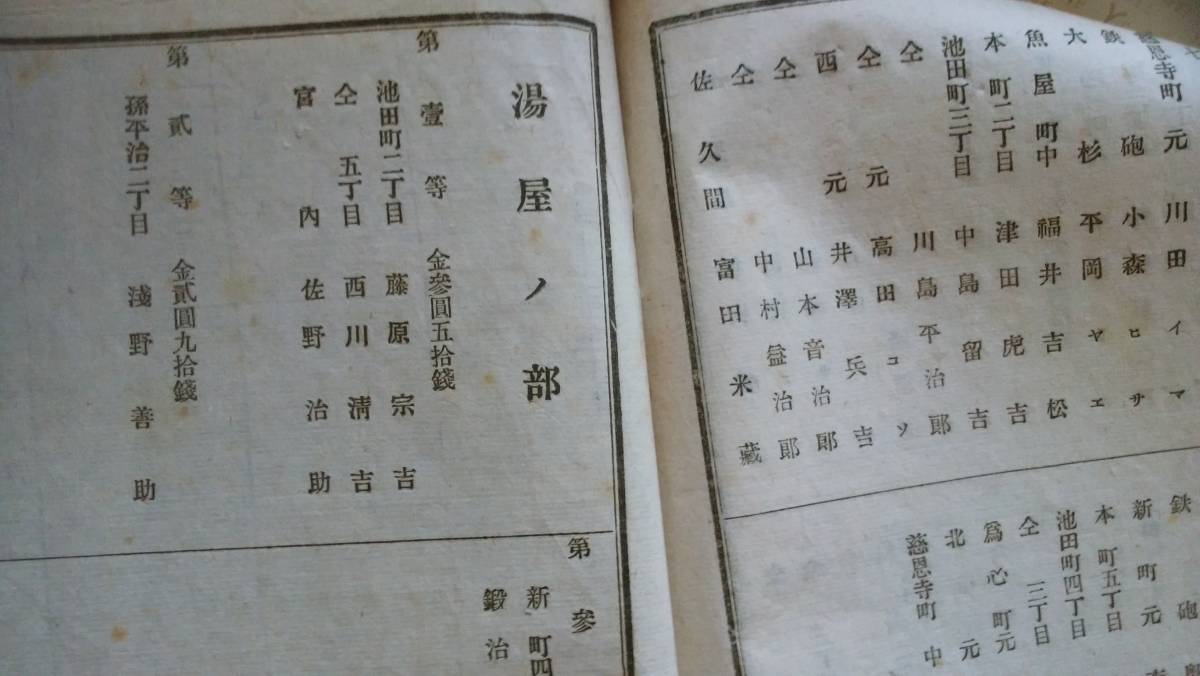 慈恩寺町元 川田イマ
鉄砲 小森ヒサ
大杉 平岡ヤエ
魚屋町中 福井吉松
本町二丁目 津田虎吉
池田町三丁目 中島留吉
仝 川島平治郎
仝元 高田コソ
西元 井澤兵吉
仝 山本音治郎
仝 中村益治郎
佐久間 富田米藏
鉄砲
新町元
本町五丁目
池田町四丁目
仝三丁目
爲心町元
北元
慈恩寺町中
湯屋ノ部
第壹等 金參圓五拾錢
池田町二丁目 藤原宗吉
仝五丁目 西川淸吉
宮內 佐野治助
第貳等 金貳圓九拾錢
孫平治二丁目 淺野善助
第參
新町四
鍛治